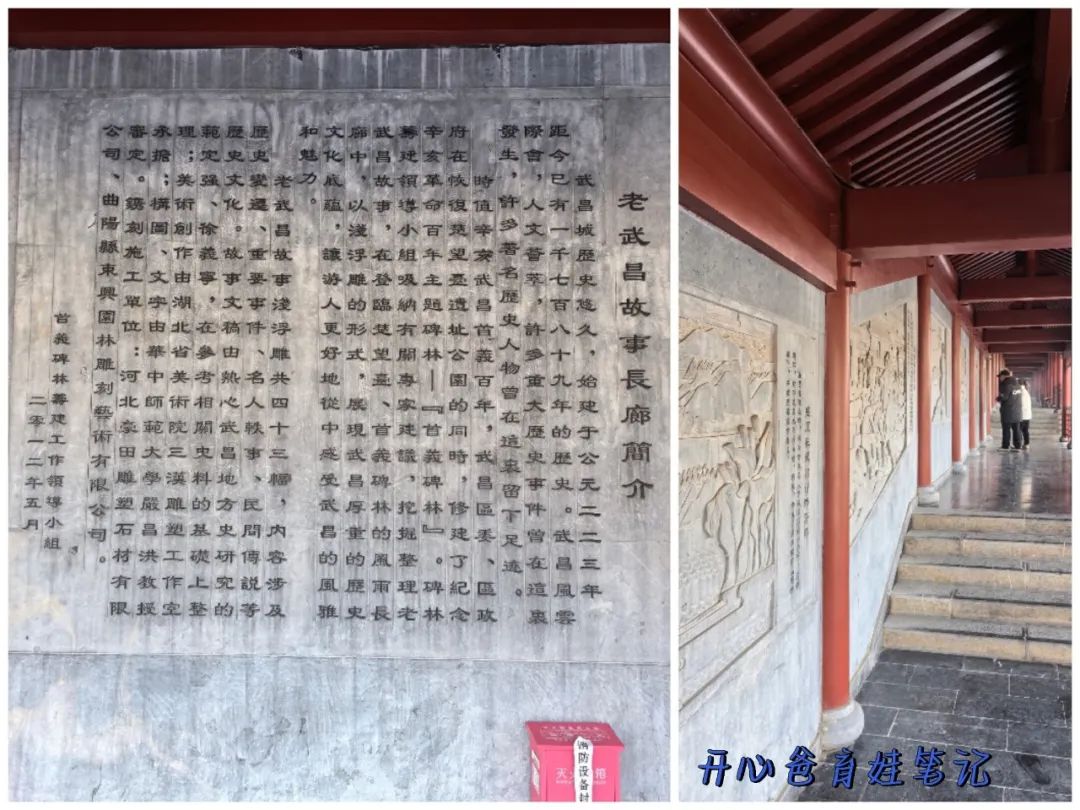 老武昌故事長廊簡介
武昌城歷史悠久，始建于公元二二三年
距今已有一千七百八十九年的歷史。武昌風雲
際會，人文薈萃，許多重大歷史事件曾在這裏
發生，許多著名歷史人物曾在這裏留下足迹。
時值辛亥武昌首義百年，武昌區委、區政
府在恢復楚望臺遺址公園的同時，修建了紀念
辛亥革命百年主題碑林——『首義碑林』。碑林
籌建領導小組吸納有關專家建議，挖掘整理老
武昌故事，在登臨楚望臺、首義碑林的風雨長
廊中，以淺浮雕的形式，展現武昌厚重的歷史
文化底蘊，讓游人更好地從中感受武昌的風雅
和魅力。
老武昌故事淺浮雕共四十三幅，内容涉及
歷史變遷、重要事件、名人軼事、民間傳説等
歷史文化。故事文稿由熱心武昌地方史研究的
範定强、徐義寧，在參考相關史料的基礎上整
理；美術創作由湖北省美術院三漢雕塑工作室
承擔；構圖、文字由華中師範大學嚴昌洪教授
審定。鐫刻施工單位：河北豪田雕塑石材有限
公司、曲陽縣東興園林雕刻藝術有限公司。
首義碑林籌建工作領導小組
二零一二年五月
消防设备封
箱
开心爸育娃笔记